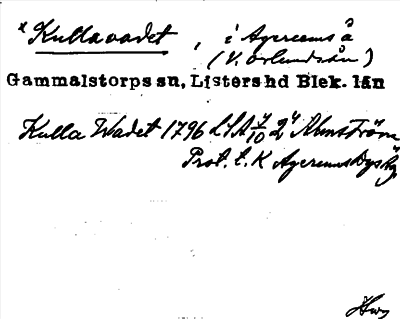 x Kullavadet, i Agerums å
(V. Orlundsån)
Gammalstorps sn, Listers hd Blek. län
Kulla Wadet 1796 LSA 7/10 2 Almström
Prot. t. K Agerums Dys
Hwg